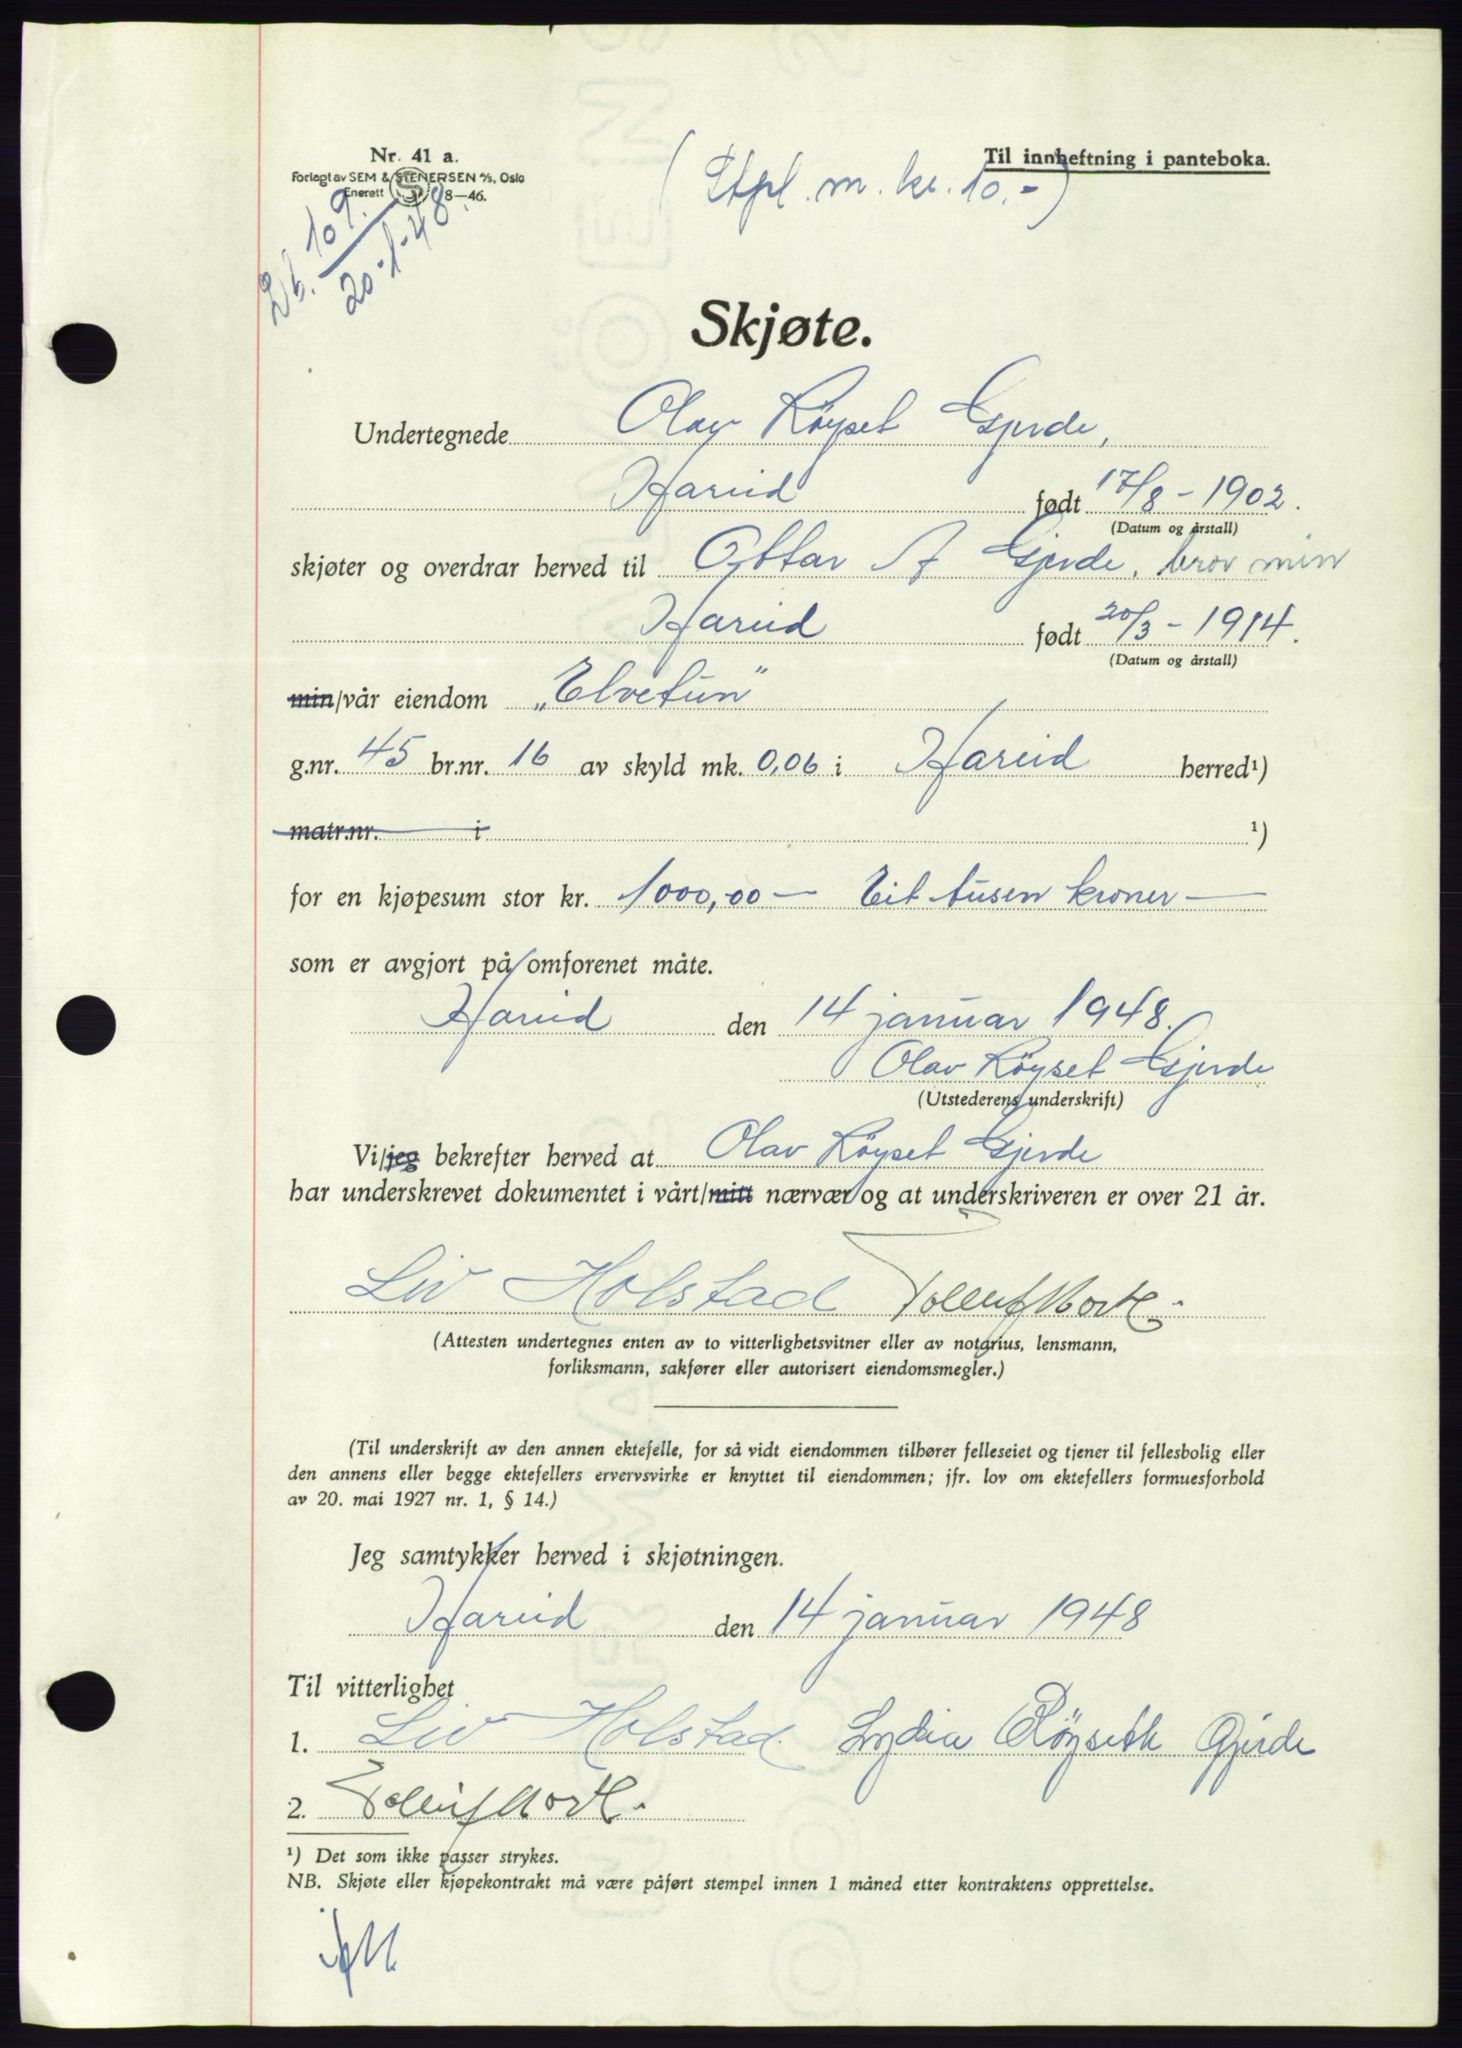 Nr. 41 a.
Forlagt av SEM & STENERSEN A/S, Oslo
Enerett S 8—46.
(Stpl. m. kr. 10.-)
Til innheftning i panteboka.
Db. 109
20-1-48.
Skjøte.
Undertegnede Olav Röyset Gjerde,
Hareid født 17/8 - 1902.
(Datum og årstall)
skjøter og overdrar herved til Ottar A Gjerde, bror min
Hareid født 20/3 - 1914.
(Datum og årstall)
min/vår eiendom „Elvetun"
g.nr. 45 br.nr. 16 av skyld mk. 0,06 i Hareid herred¹)
matr.nr. i ¹)
for en kjøpesum stor kr. 1000,00 — Eit tusen kroner —
som er avgjort på omforenet måte.
Hareid den 14 januar 1948.
Olav Röyset Gjerde
(Utstederens underskrift)
Vi/jeg bekrefter herved at Olav Röyset Gjerde
har underskrevet dokumentet i vårt/mitt nærvær og at underskriveren er over 21 år.
Liv Holstad
(Attesten undertegnes enten av to vitterlighetsvitner eller av notarius, lensmann,
forliksmann, sakfører eller autorisert eiendomsmegler.)
(Til underskrift av den annen ektefelle, for så vidt eiendommen tilhører felleseiet og tjener til fellesbolig eller
den annens eller begge ektefellers ervervsvirke er knyttet til eiendommen; jfr. lov om ektefellers formuesforhold
av 20. mai 1927 nr. 1, § 14.)
Jeg samtykker herved i skjøtningen.
Hareid den 14 januar 1948
Til vitterlighet
1. Liv Holstad Lydia Röyseth Gjerde
2.
¹) Det som ikke passer strykes.
NB. Skjøte eller kjøpekontrakt må være påført stempel innen 1 måned etter kontraktens opprettelse.